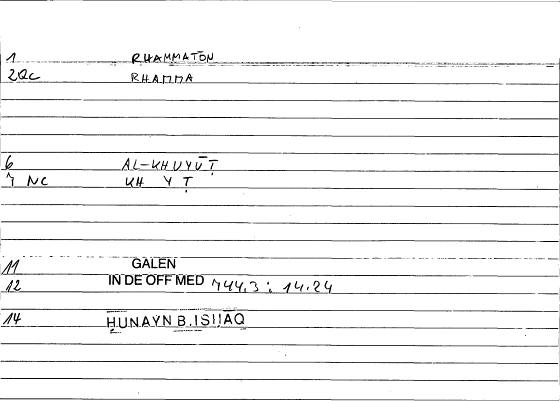 1 RHAMMATŌN
2QC RHAMMA
6 AL-KHUYŪṬ
7 NC KH Y Ṭ
11 GALEN
12 IN DE OFF MED 744.3 : 14.24
14 ḤUNAYN B. ISḤAQ